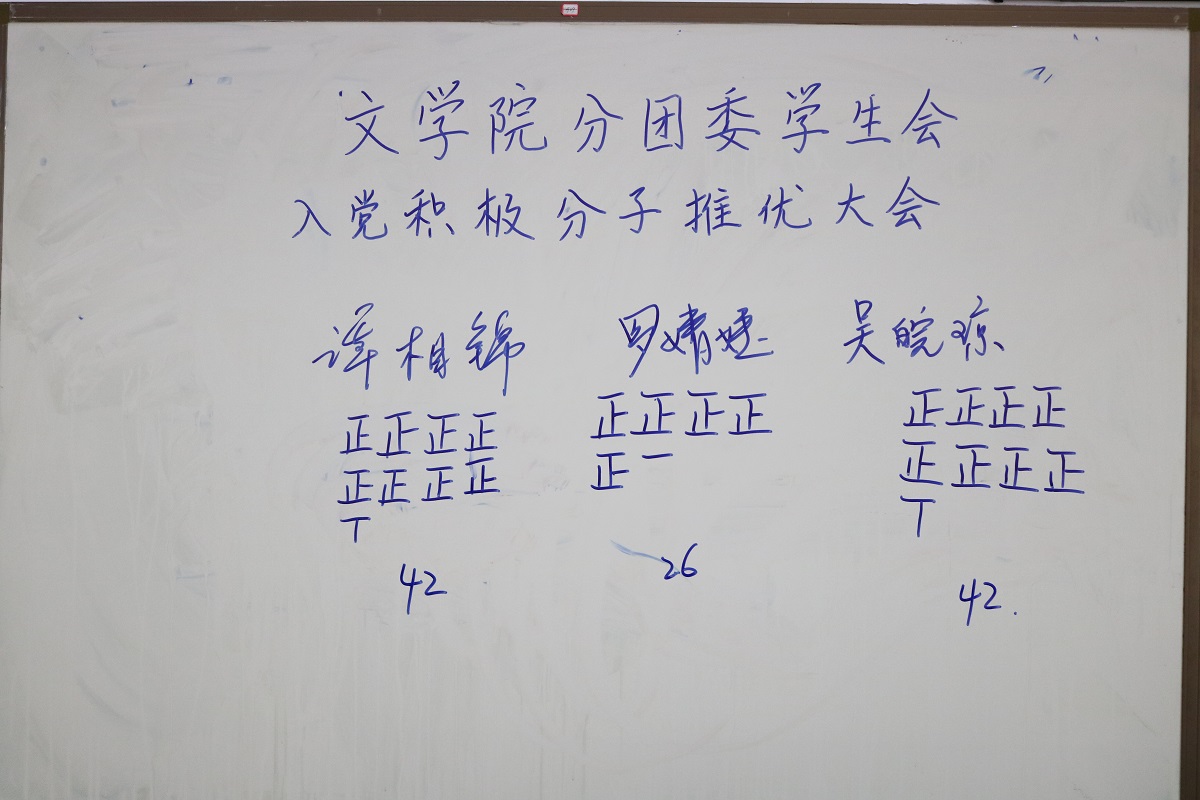 文学院分团委学生会
入党积极分子推优大会
谭相锦 罗婧 吴皖琼
正正正正 正正正正 正正正正
正正正正 正一 正正正正
丅 丅
42 26 42.